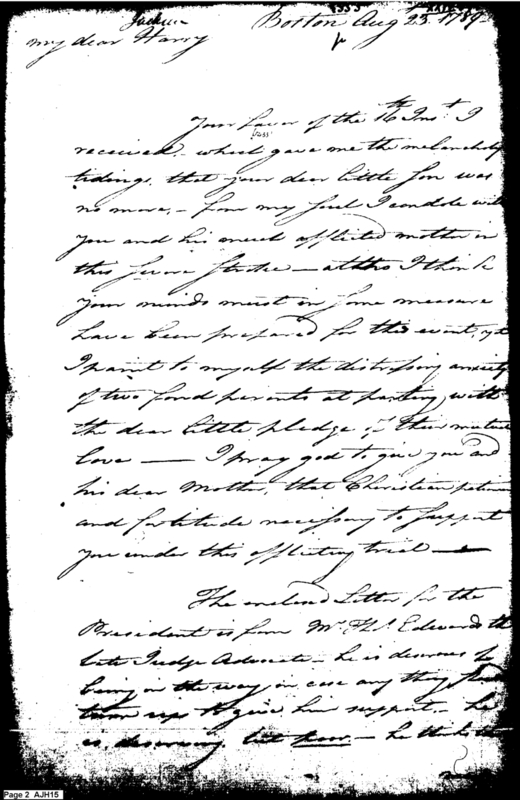 Boston Aug 23. 1789
Jackson
my dear Harry
Your favor of the 16th Inst I
received - which gave me the melancholy
tidings, that your dear little Son was
no more, - from my Soul I condole with
you and his much afflicted mother on
this severe Stroke - altho I think
your minds must in some measure
have been prepared for this event, yet
I paint to myself the distressing anxiety
of two fond parents at parting with
the dear little pledge of their mutual
love — I pray god to give you and
his dear Mother, that Christian patience
and fortitude necessary to support
you under this afflicting trial —
The enclosed Letter for the
President is from Mr Thos Edwards the
late Judge Advocate - he is desirous of
being in the way in case any thing should
turn up to give him support - he
is deserving, but poor - he thinks the
Page 2 AJH15